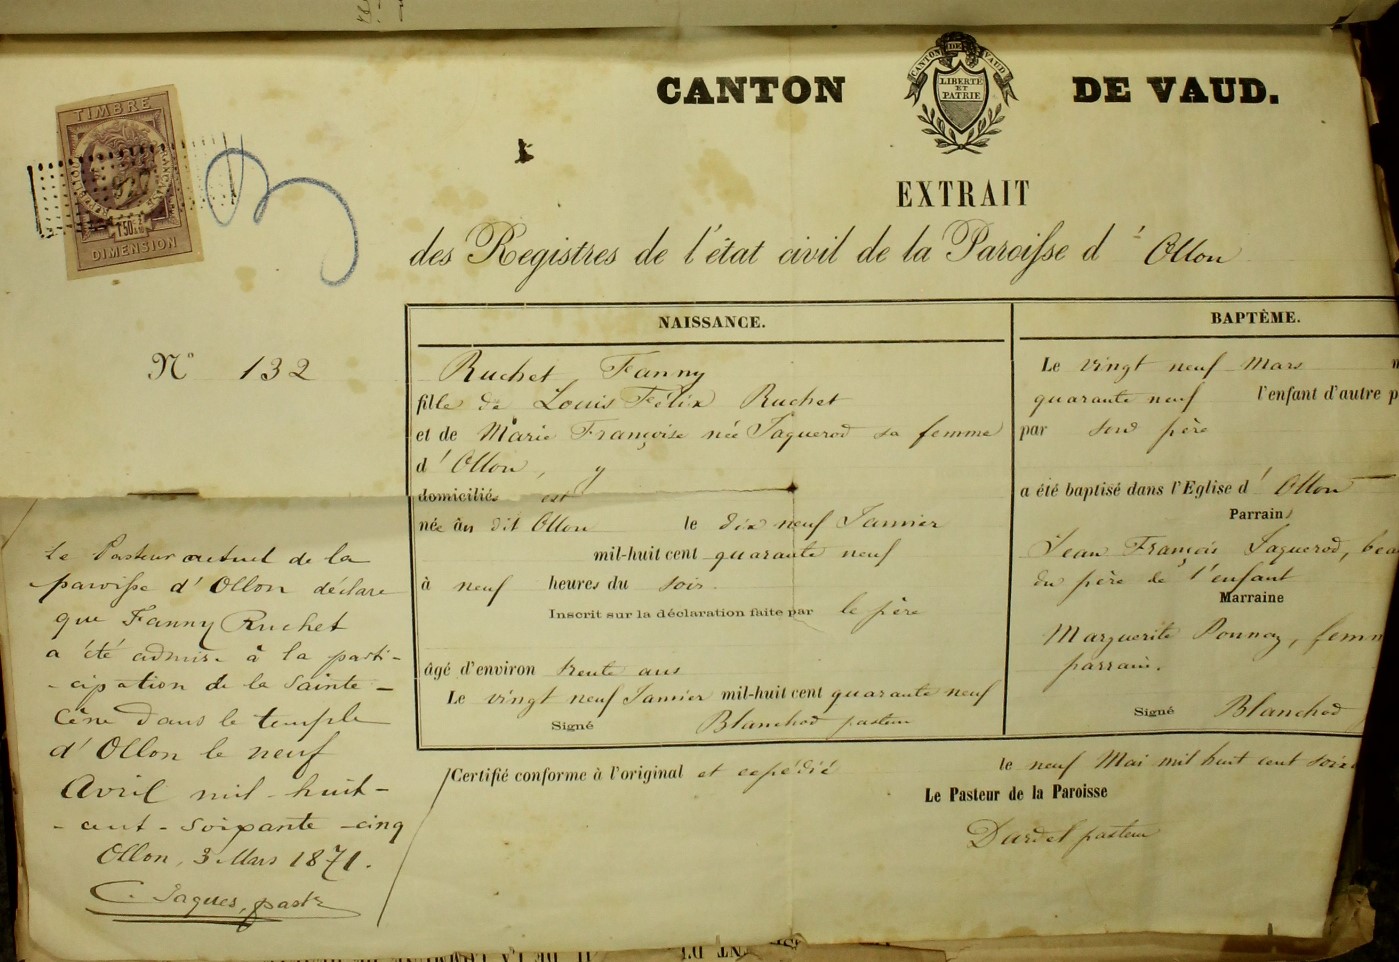 TIMBRE
1F50c
DIMENSION
CANTON DE VAUD.
CANTON DE VAUD
LIBERTÉ
ET
PATRIE
EXTRAIT
des Registres de l'état civil de la Paroisse d' Ollon
N° 132
NAISSANCE.
Ruchet Fanny
fille de Louis Félix Ruchet
et de Marie Françoise née Jaquerod sa femme
d'Ollon, y
domiciliés
née au dit Ollon le dix neuf Janvier
mil-huit cent quarante neuf
à neuf heures du soir.
Inscrit sur la déclaration faite par le père
âgé d'environ trente ans
Le vingt neuf Janvier mil-huit cent quarante neuf
Signé Blanchod pasteur
BAPTÊME.
Le vingt neuf Mars
quarante neuf l'enfant d'autre p
par son père
a été baptisé dans l'Eglise d' Ollon
Parrain
Jean François Jaquerod, beau
du père de l'enfant
Marraine
Marguerite Ponnaz, femm
parrain.
Signé Blanchod
Certifié conforme à l'original et expédié le neuf Mai mil huit cent soix
Le Pasteur de la Paroisse
Durdel pasteur
Le Pasteur actuel de la
paroisse d'Ollon déclare
que Fanny Ruchet
a été admise à la parti-
-cipation de la Sainte-
Cène dans le temple
d'Ollon le neuf
Avril mil-huit-
-cent-soixante-cinq
Ollon, 3 Mars 1871.
C. Jaques, pastr